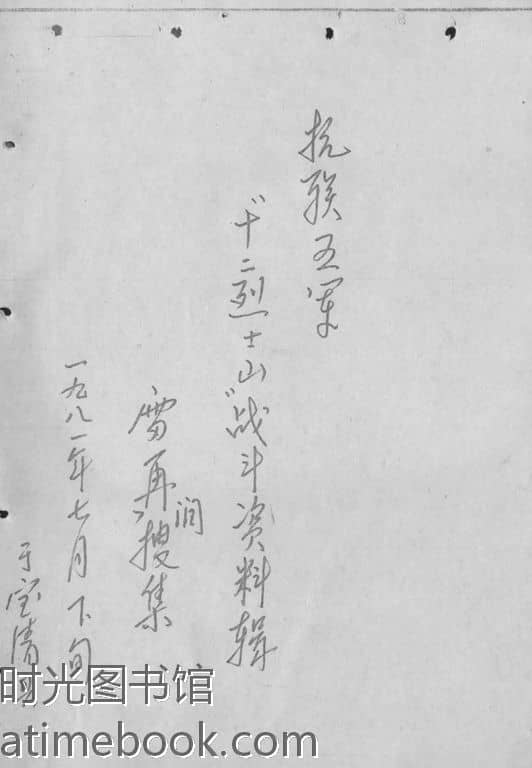 抗联五军
“十二烈士山”战斗资料辑
雷再润搜集
一九八一年七月下旬
于宝清
时光图书馆
atimebook.com